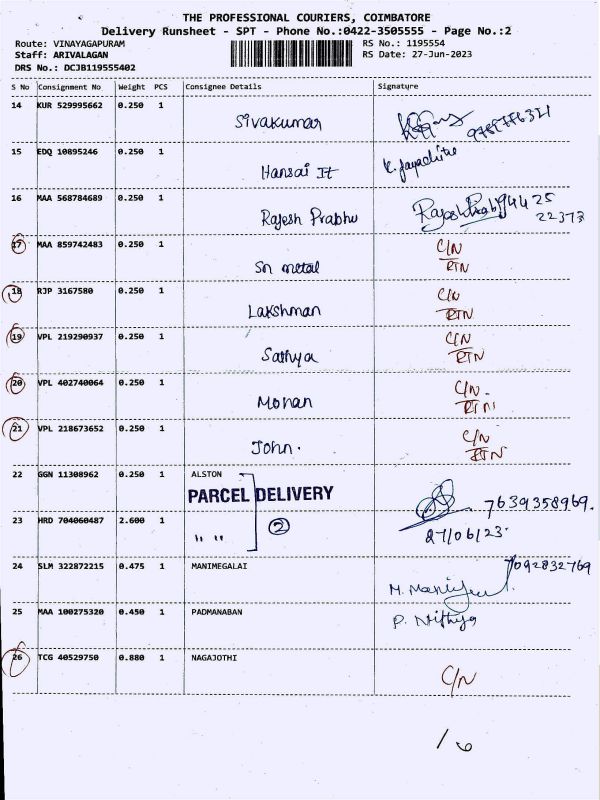 THE PROFESSIONAL COURIERS, COIMBATORE
Delivery Runsheet - SPT - Phone No.:0422-3505555 - Page No.:2
Route: VINAYAGAPURAM RS No.: 1195554
Staff: ARIVALAGAN RS Date: 27-Jun-2023
DRS No.: DCJB119555402
S No Consignment No Weight PCS Consignee Details Signature
14 KUR 529995662 0.250 1
Sivakumar
15 EDQ 10895246 0.250 1
Hansai It K. Jayachitra
16 MAA 568784689 0.250 1
Rajesh Prabhu Rajesh Prabhu 94425
22373
17 MAA 859742483 0.250 1 C/N
Sn metal RTN
18 RJP 3167580 0.250 1 C/N
Lakshman RTN
19 VPL 219290937 0.250 1 C/N
Sathya RTN
20 VPL 402740064 0.250 1 C/N
Mohan RTN
21 VPL 218673652 0.250 1 C/N
John. RTN
22 GGN 11308962 0.250 1 ALSTON
PARCEL DELIVERY 7639358969.
23 HRD 704060487 2.600 1 2
" " 27/06/23.
24 SLM 322872215 0.475 1 MANIMEGALAI 7092832769
25 MAA 100275320 0.450 1 PADMANABAN P. Nithya
26 TCG 40529750 0.880 1 NAGAJOTHI
C/N